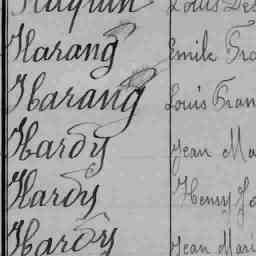 Louis
Harang Emile
Harang Louis Fran
Hardy Jean Ma
Hardy Henry Jo
Hardy Jean Mari